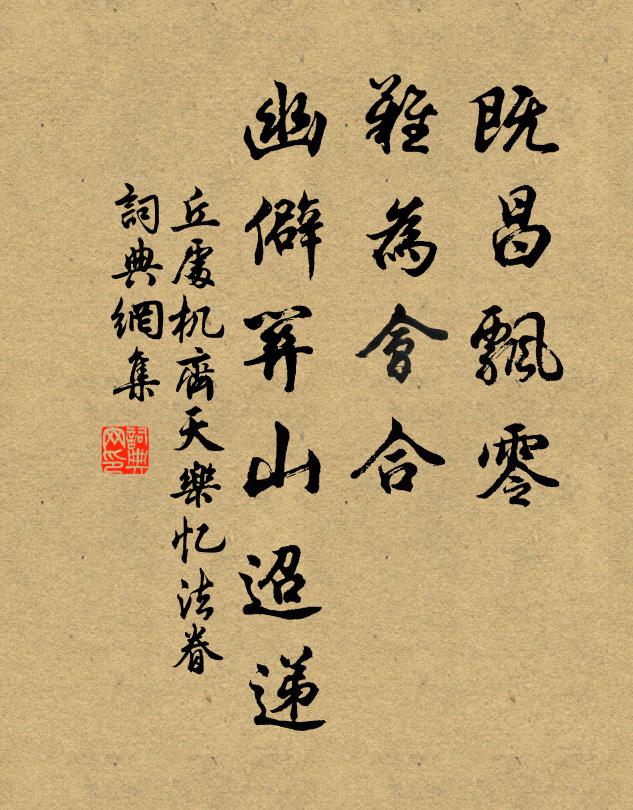 既昌飄零
難為會合
幽僻关山迢递
丘處机齊天樂忆法眷
詞典網集
詞典网印